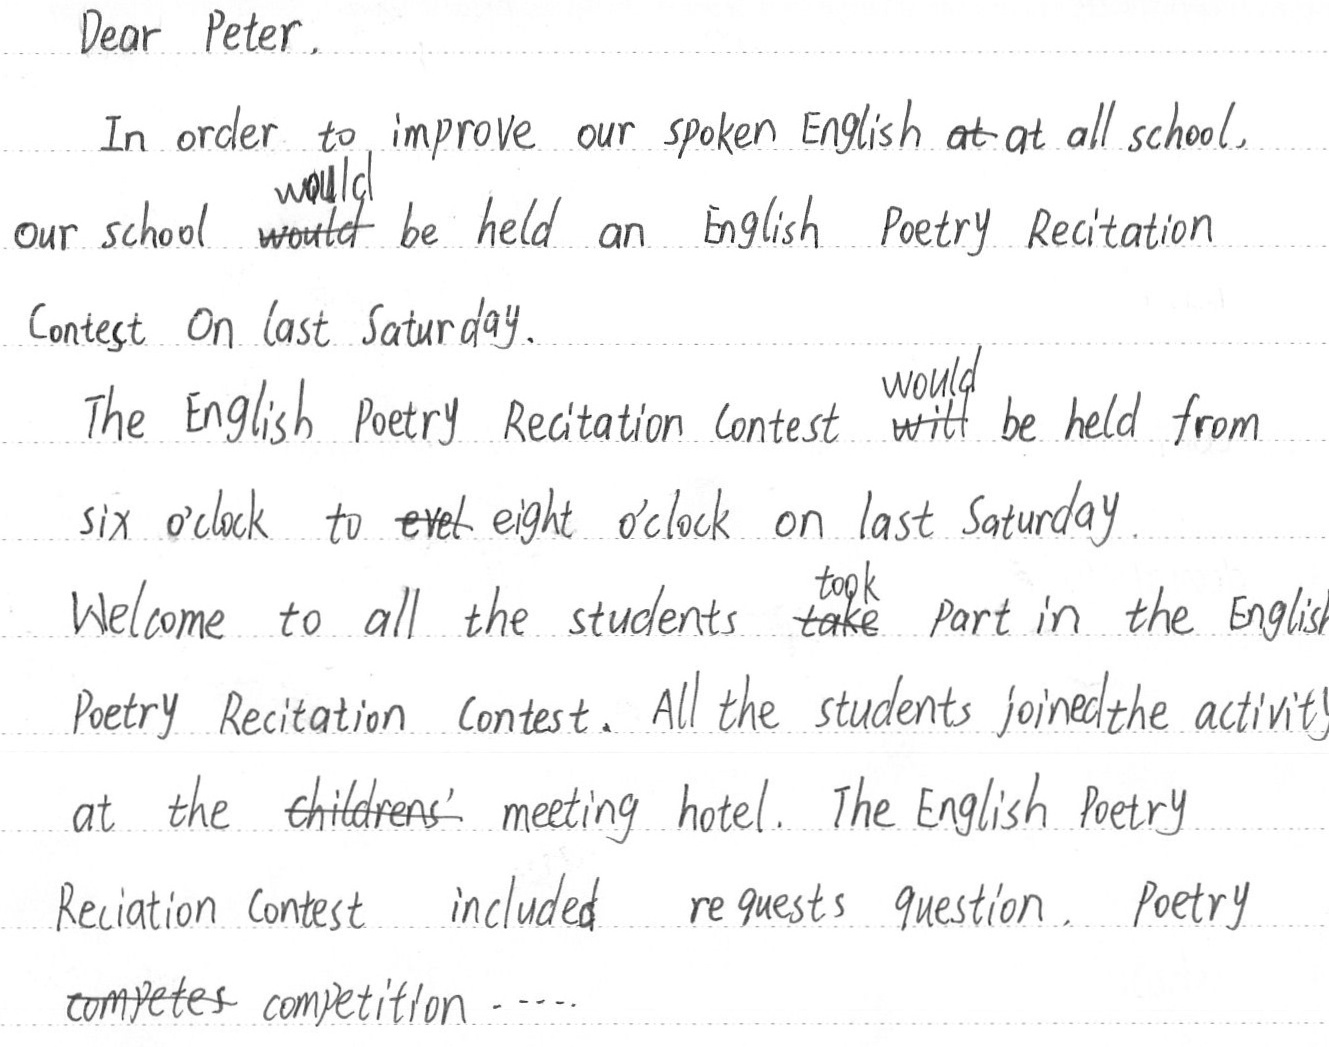 Dear Peter,
In order to improve our spoken English at at all school,
our school would would be held an English Poetry Recitation
Contest On last Saturday.
The English Poetry Recitation Contest would will be held from
six o'clock to evet eight o'clock on last Saturday.
Welcome to all the students took take part in the English
Poetry Recitation Contest. All the students joined the activity
at the childrens' meeting hotel. The English Poetry
Reciation Contest included requests question, Poetry
competes competition -----.